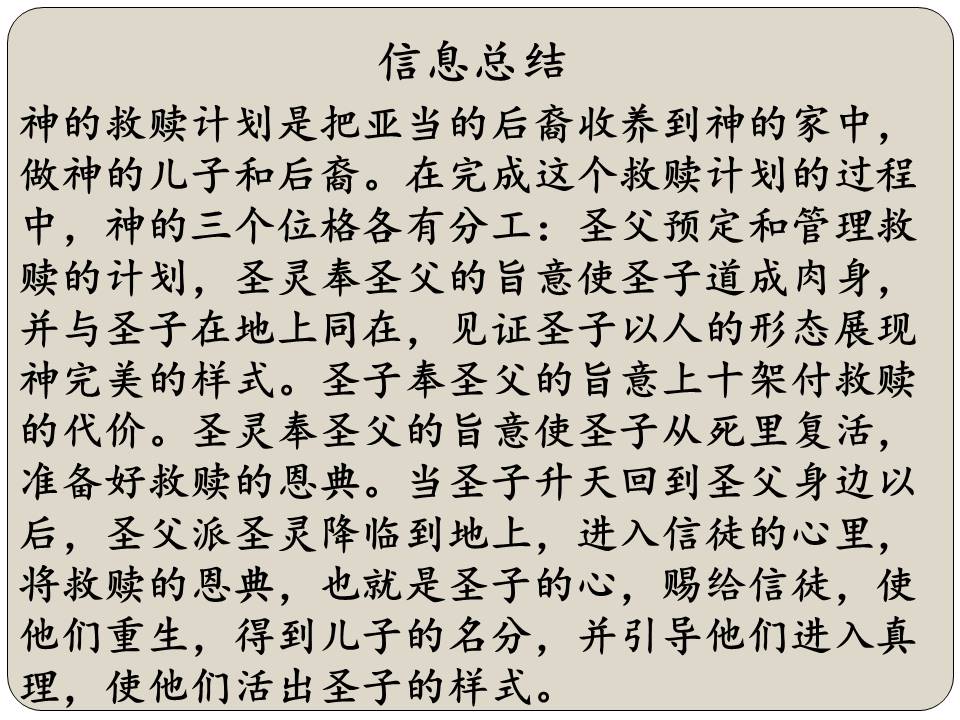 信息总结
神的救赎计划是把亚当的后裔收养到神的家中，
做神的儿子和后裔。在完成这个救赎计划的过程
中，神的三个位格各有分工：圣父预定和管理救
赎的计划，圣灵奉圣父的旨意使圣子道成肉身，
并与圣子在地上同在，见证圣子以人的形态展现
神完美的样式。圣子奉圣父的旨意上十架付救赎
的代价。圣灵奉圣父的旨意使圣子从死里复活，
准备好救赎的恩典。当圣子升天回到圣父身边以
后，圣父派圣灵降临到地上，进入信徒的心里，
将救赎的恩典，也就是圣子的心，赐给信徒，使
他们重生，得到儿子的名分，并引导他们进入真
理，使他们活出圣子的样式。